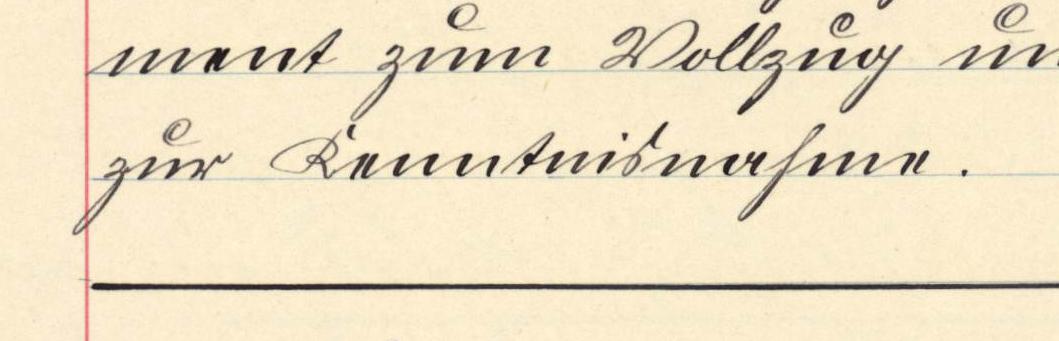 ment zum Vollzug un
zur Kenntnisnahme.